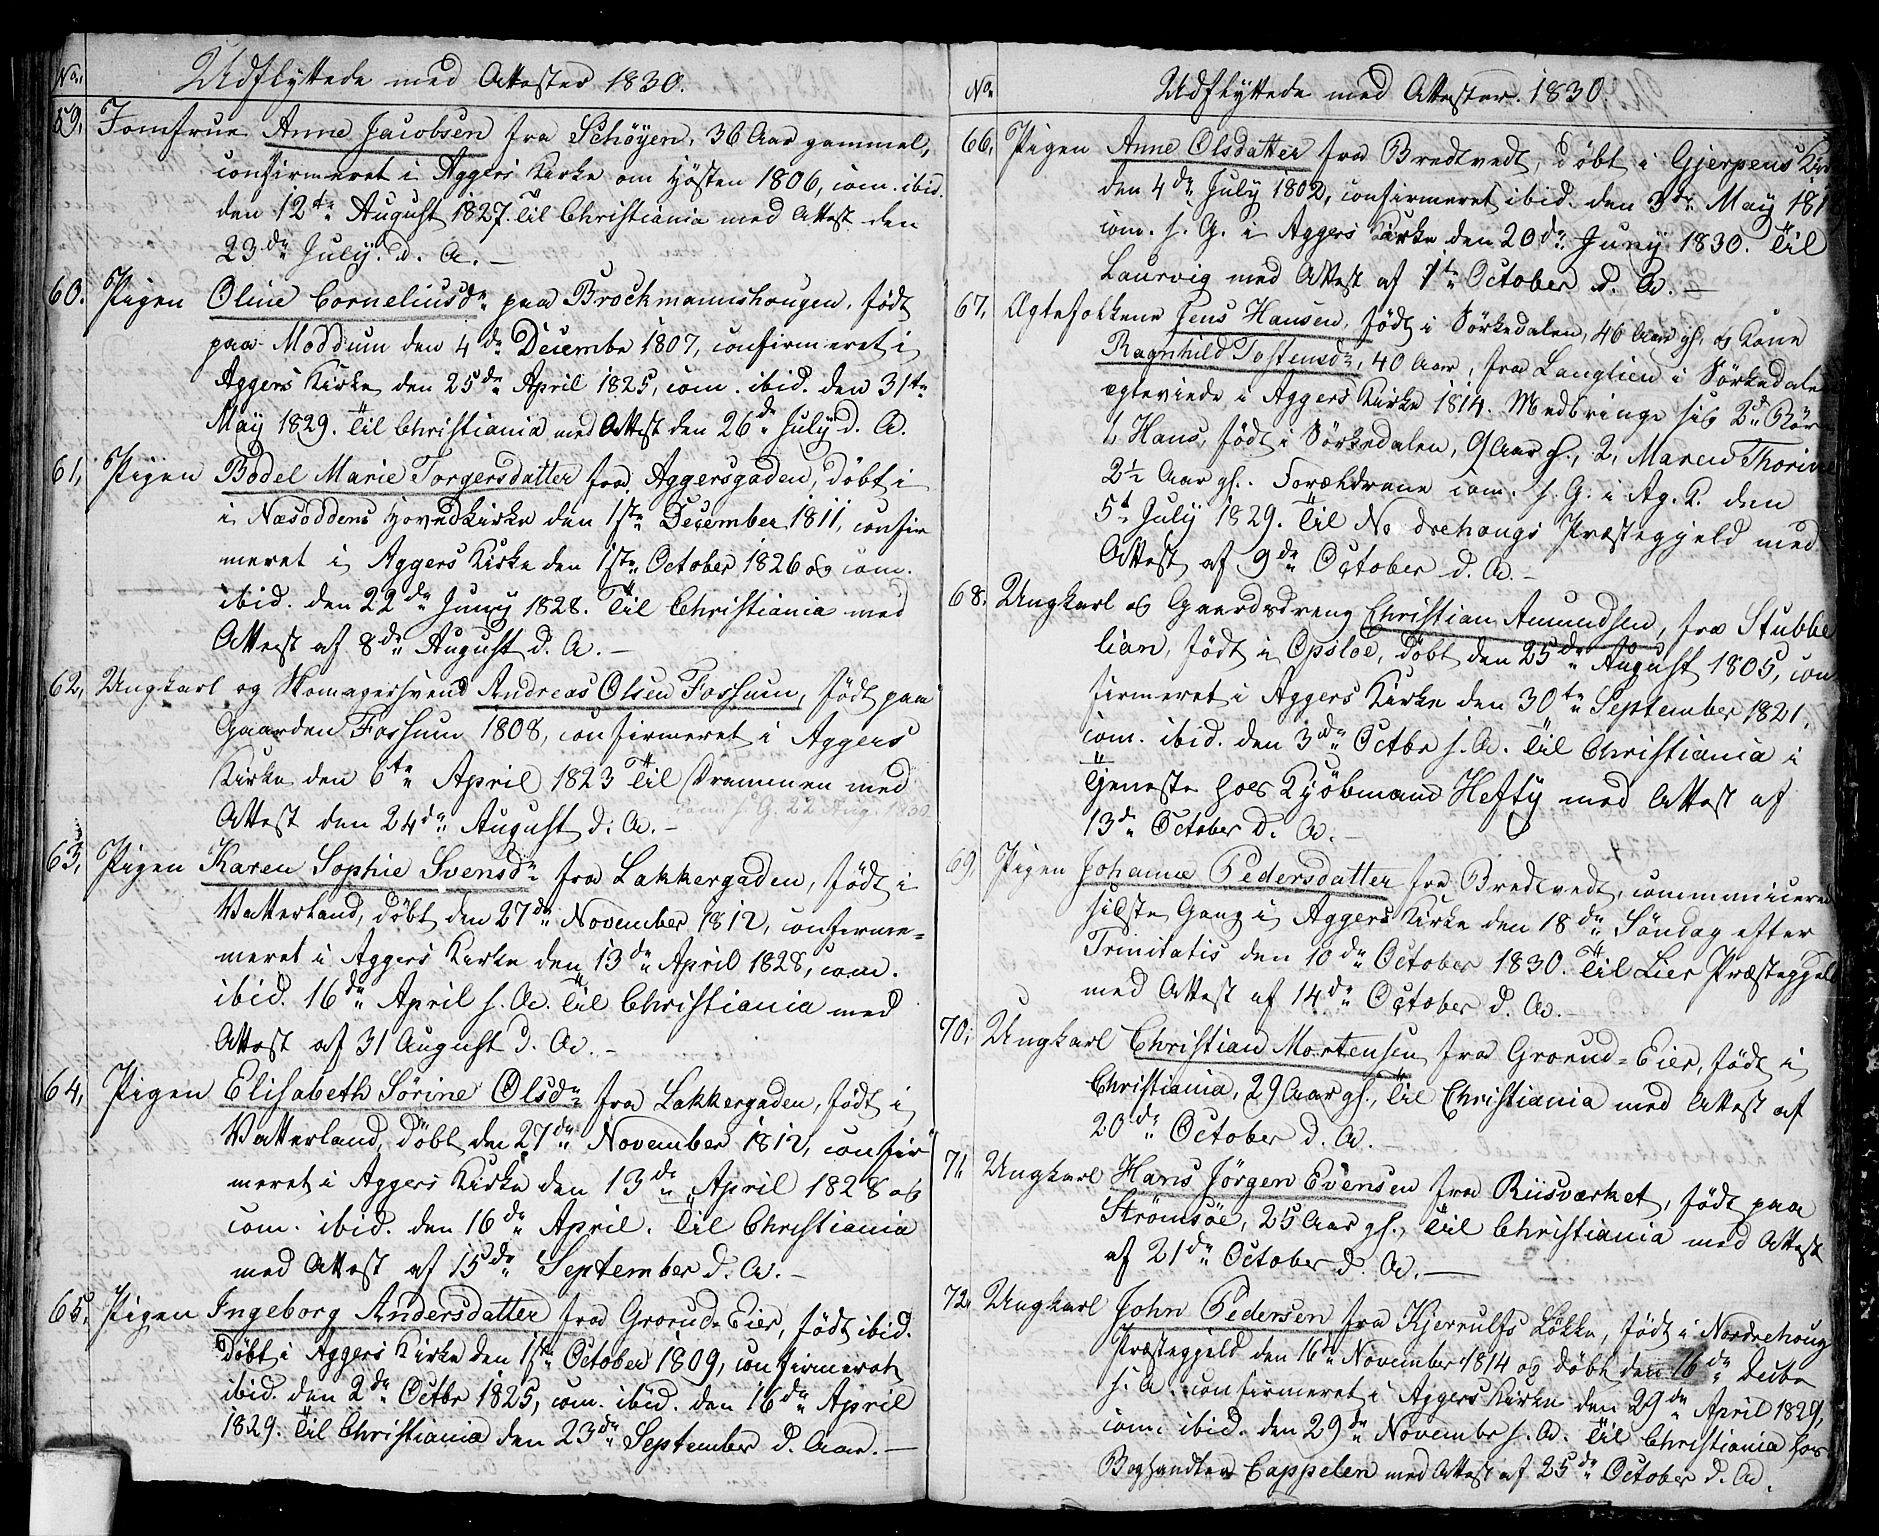 No. Udflyttede med Attester 1830.
59, Jomfrue Anne Jacobsen fra Schøyen, 36 Aar gammel,
confirmeret i Aggers Kirke om Høsten 1806, com. ibid.
den 12te August 1827. Til Christiania med Attest den
23de July d. A. –
60. Pigen Oline Corneliusdr paa Brockmannshougen, født
paa Moddum den 4de Decembr 1807, confirmeret i
Aggers Kirke den 25de April 1825, com. ibid. den 31te
May 1829. Til Christiania med Attest den 26de July d. A.
61, Pigen Bodel Marie Torgersdatter fra Aggersgaden, døbt i
i Næsoddens Hovedkirke den 1ste December 1811, confir
meret i Aggers Kirke den 1ste October 1826 og com.
ibid. den 22de Juny 1828. Til Christiania med
Attest af 8de August d. A. –
62, Ungkarl og Skomagersvend Andreas Olsen Fossum, født paa
Gaarden Fossum 1808, confirmeret i Aggers
Kirke den 6te April 1823 Til Drammen med
com. s. G. 22 Aug. 1830
Attest den 24de August d. A. –
63, Pigen Karen Sophie Svensdr fra Lakkergaden, født i
Vatterland, døbt den 27de November 1812, confirme=
meret i Aggers Kirke den 13de April 1828, com.
ibid. 16de April s. A. Til Christiania med
Attest af 31 August d. A. –
64, Pigen Elisabeth Sørine Olsdr fra Lakkergaden, født i
Vatterland, døbt den 27de November 1812, confir
meret i Aggers Kirke den 13de April 1828 og
com. ibid. den 16de April. Til Christiania
med Attest af 15de September d. A. –
65, Pigen Ingeborg Andersdatter fra Grorud=Eier, født ibid.
døbt i Aggers Kirke den 1ste October 1809, confirmeret
ibid. den 2de Octbr 1825, com. ibid. den 16de April
1829. Til Christiania den 23de September d. Aar. –
No. Udflyttede med Attester. 1830
66, Pigen Anne Olsdatter fra Bredtvedt, døbt i Gjerpens
den 4de July 1802, confirmeret ibid. den 3die May
com. s. G. i Aggers Kirke den 20de Juny 1830. Til
Laurvig med Attest af 1te October d. A. –
67, Ægtefolkene Jens Hansen, født i Sørkedalen, 40 Aar gl. og Kone
Ragnhild Tostensdr, 40 Aar, fra Langlien i Sørkedalen
egteviede i Aggers Kirke 1814. Medbringe sig 2de Børn
1, Hans, født i Sørkedalen, 9 Aar gl., 2, Maren Thorine
2½ Aar gl. Forældrene com. s. G. i Ag. K. den
5te July 1829. Til Nordrehougs Præstegjeld med
Attest af 9de October d. A. –
68, Ungkarl og Gaardsdreng Christian Amundsen, fra Stubbe
lian, født i Opsloe, døbt den 25de August 1805, con
firmeret i Aggers Kirke den 30te September 1821,
com. ibid. den 3die Octbr s. A. Til Christiania i
Tjeneste hos Kjøbmand Hefty med Attest af
13de October d. A. –
69, Pigen Johanne Pedersdatter fra Bredtvedt, communicered
sidste Gang i Aggers Kirke den 18de Søndag efter
Trinitatis den 10de October 1830. Til Lier Præstegjeld
med Attest af 14de October d. A. –
70, Ungkarl Christian Mortensen fra Grorud=Eier, født i
Christiania, 29 Aar gl., Til Christiania med Attest af
20de October d. A. –
71 Ungkarl Hans Jørgen Evensen fra Riisværket, født paa
Strømsøe, 25 Aar gl., Til Christiania med Attest
af 21de October d. A. –
72, Ungkarl John Pedersen fra Kjerrulfs Løkke, født i Nordrehoug
Præstegjeld den 16de November 1814 og døbt den 16de Decbr
s. A. confirmeret i Aggers Kirke den 29de April 1829,
com. ibid. den 29de Novembr s. A. Til Christiania hos
Boghandler Cappelen med Attest af 25de October d. A.